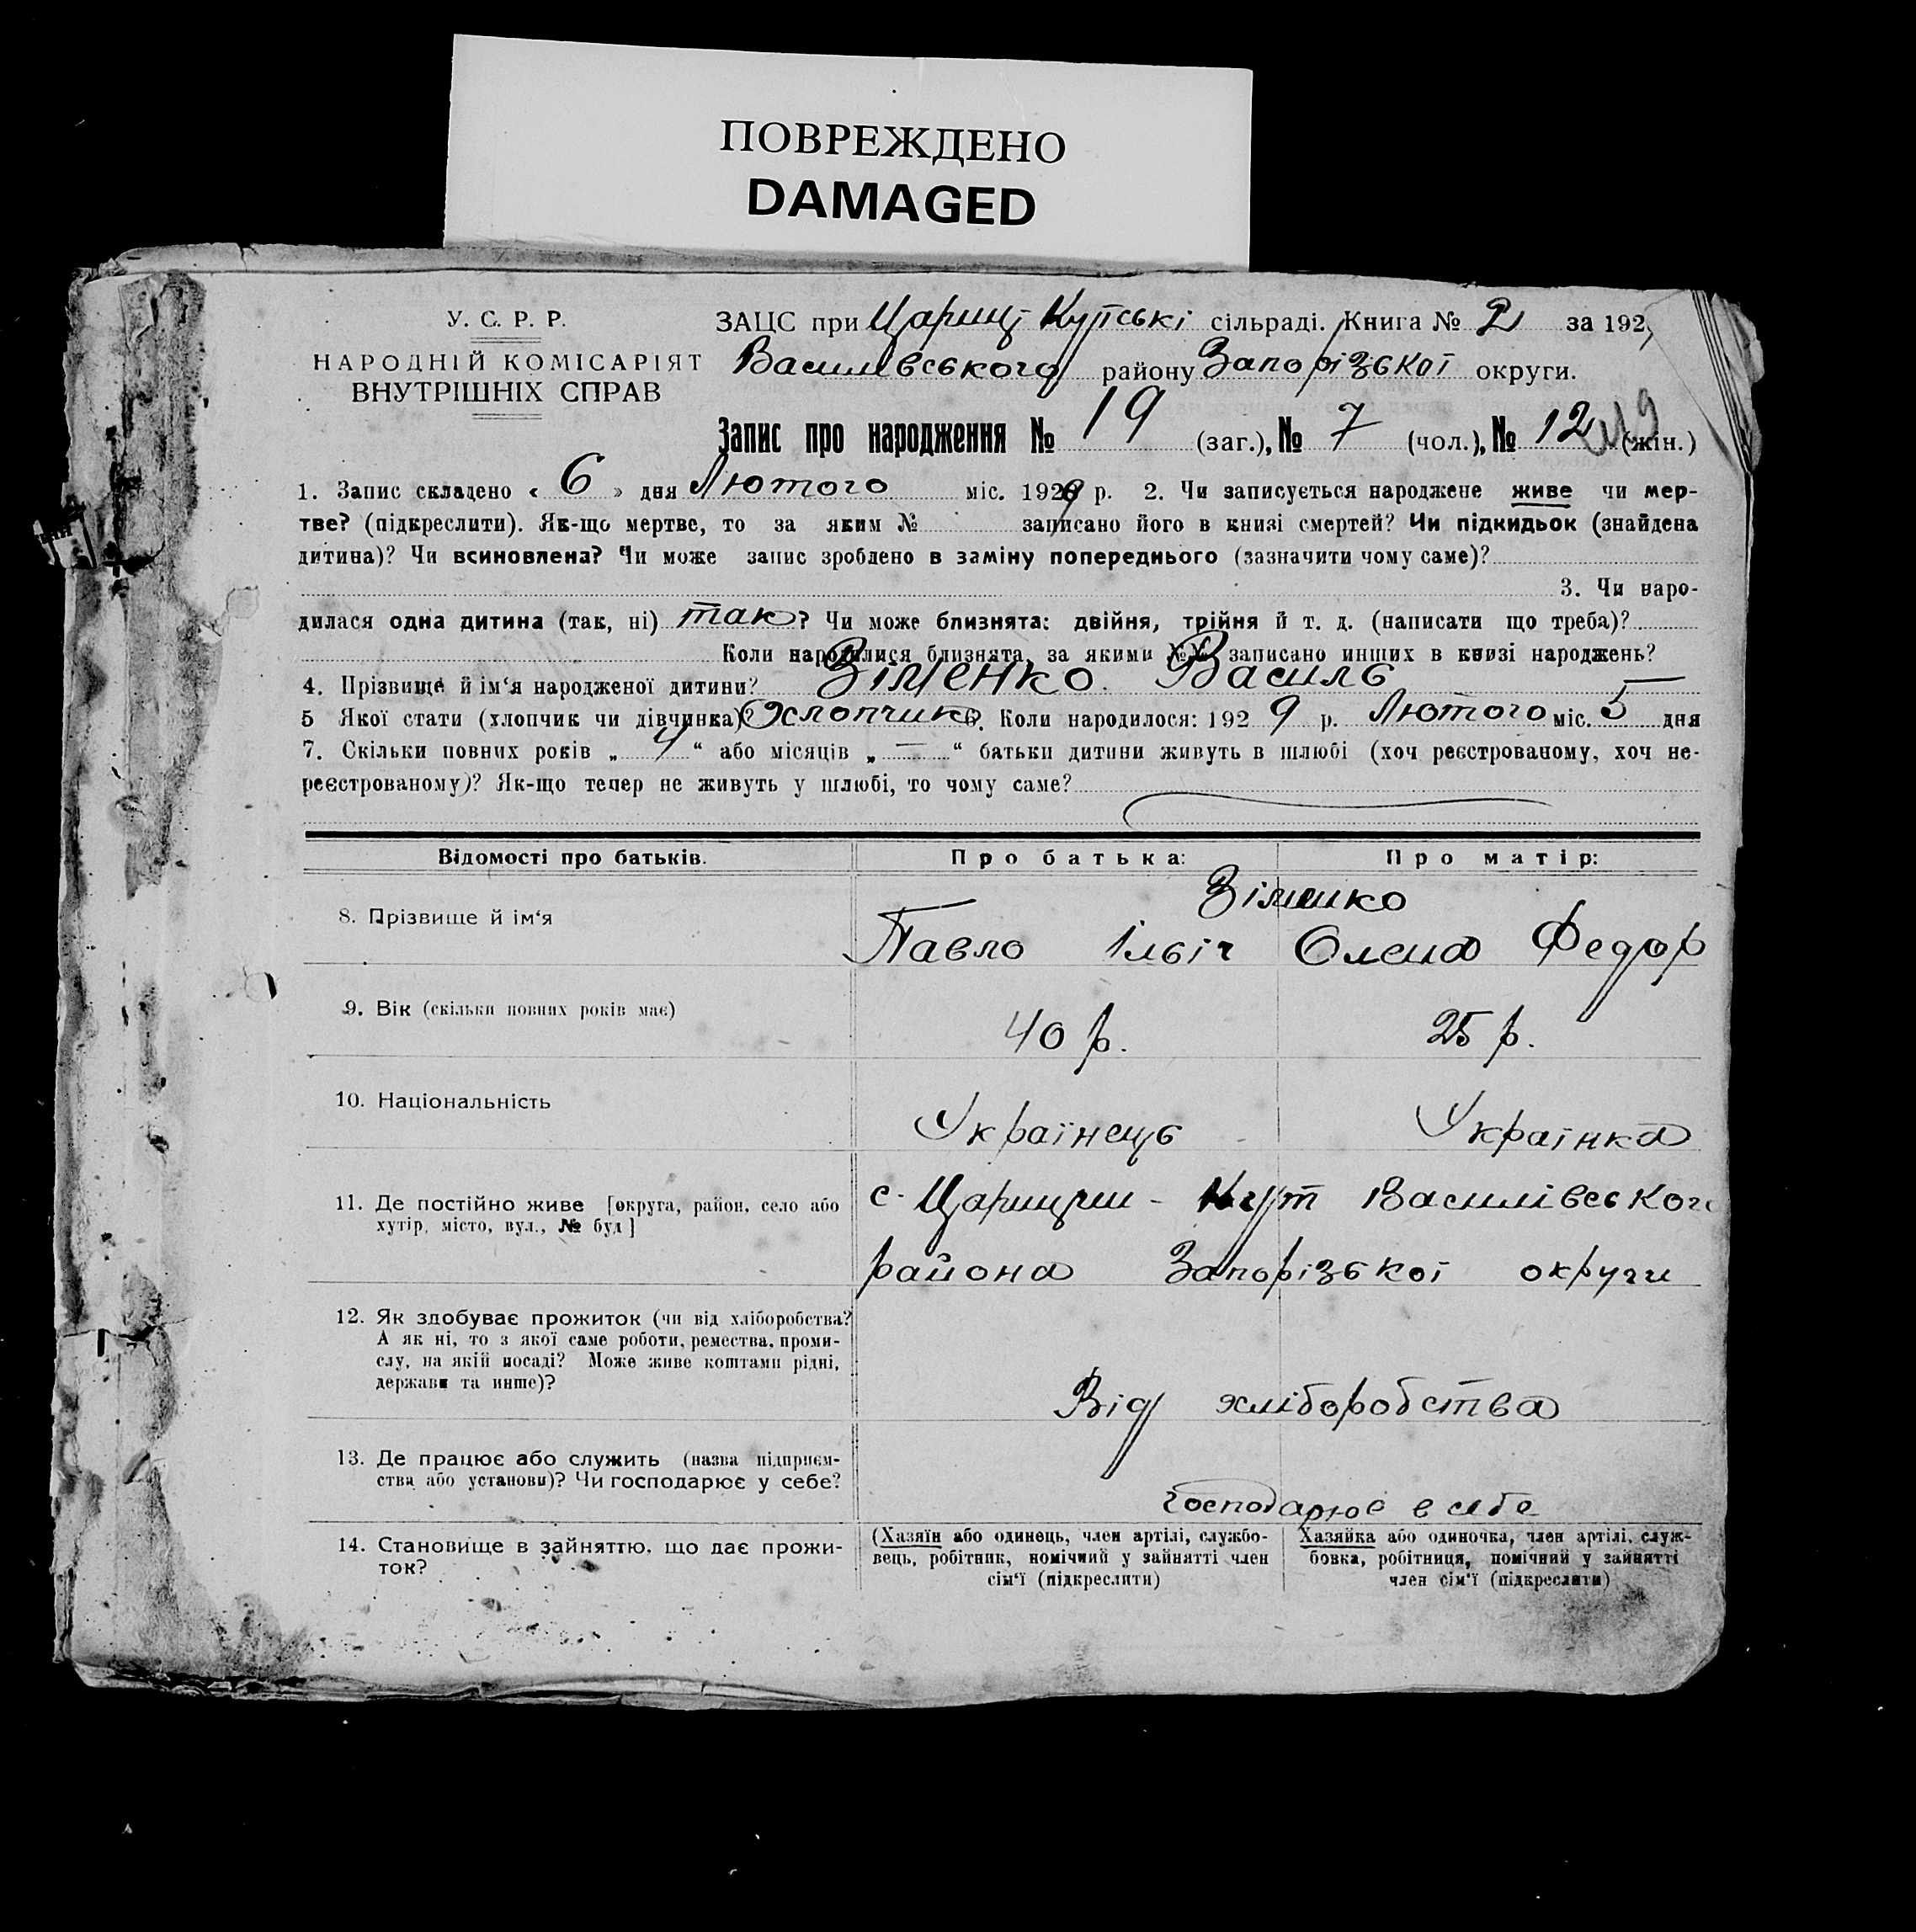 ПОВРЕЖДЕНО
DAMAGED
У. С. Р. Р.
НАРОДНІЙ КОМІСАРІЯТ
ВНУТРІШНІХ СПРАВ
ЗАЦС при Цариці-Кутські сільраді. Книга № 2 за 192
Василівського району Запорізької округи.
Запис про народження № 19 (заг.), № 7 (чол.), № 12 (жін.)
1. Запис складено « 6 » дня Лютого міс. 1929 р. 2. Чи записується народжене живе чи мер-
тве? (підкреслити). Як-що мертве, то за яким № записано його в книзі смертей? Чи підкидьок (знайдена
дитина)? Чи всиновлена? Чи може запис зроблено в заміну попереднього (зазначити чому саме)?
3. Чи наро-
дилася одна дитина (так, ні) так? Чи може близнята: двійня, трійня й т. д. (написати що треба)?
Коли народилися близнята, за якими №№ записано инших в книзі народжень?
4. Прізвище й ім‘я народженої дитини? Зіменко Василь
5 Якої стати (хлопчик чи дівчинка)? Хлопчик 6. Коли народилося: 1929 р. Лютого міс. 5 дня
7. Скільки повних років „ 4 “ або місяців „ — “ батьки дитини живуть в шлюбі (хоч реєстрованому, хоч не-
реєстрованому)? Як-що тепер не живуть у шлюбі, то чому саме?
Відомості про батьків. Про батька: Про матір:
8. Прізвище й ім‘я
Павло Ільіч Олена Федор
9. Вік (скільки повних років має) 40 р. 25 р.
10. Національність Українець Українка
11. Де постійно живе [округа, район, село або
хутір, місто, вул., № буд]
с. Царицин - Кут Василівського
района Запорізької округи
12. Як здобуває прожиток (чи від хліборобства?
А як ні, то з якої саме роботи, ремества, проми-
слу, на якій посаді? Може живе коштами рідні,
держави та инше)?
Від хліборобства
13. Де працює або служить (назва підприєм-
ства або установи)? Чи господарює у себе?
господарює в себе
14. Становище в зайняттю, що дає прожи-
ток?
(Хазяїн або одинець, член артілі, службо-
вець, робітник, помічний у зайнятті член
сім‘ї (підкреслити)
Хазяйка або одиночка, член артілі, служ-
бовка, робітниця, помічний у зайнятті
член сім‘ї (підкреслити)